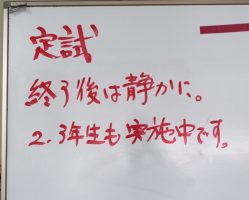 定試
終了後は静かに。
2.3年生も実施中です。